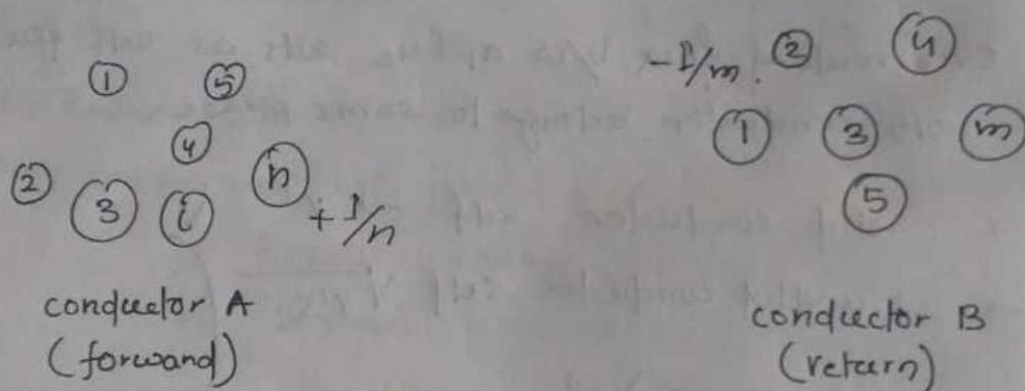 ① ⑤
④
② ③ ⓘ ⓝ + I/n
conductor A
(forward)
- I/m. ② ④
① ③ ⓜ
⑤
conductor B
(return)